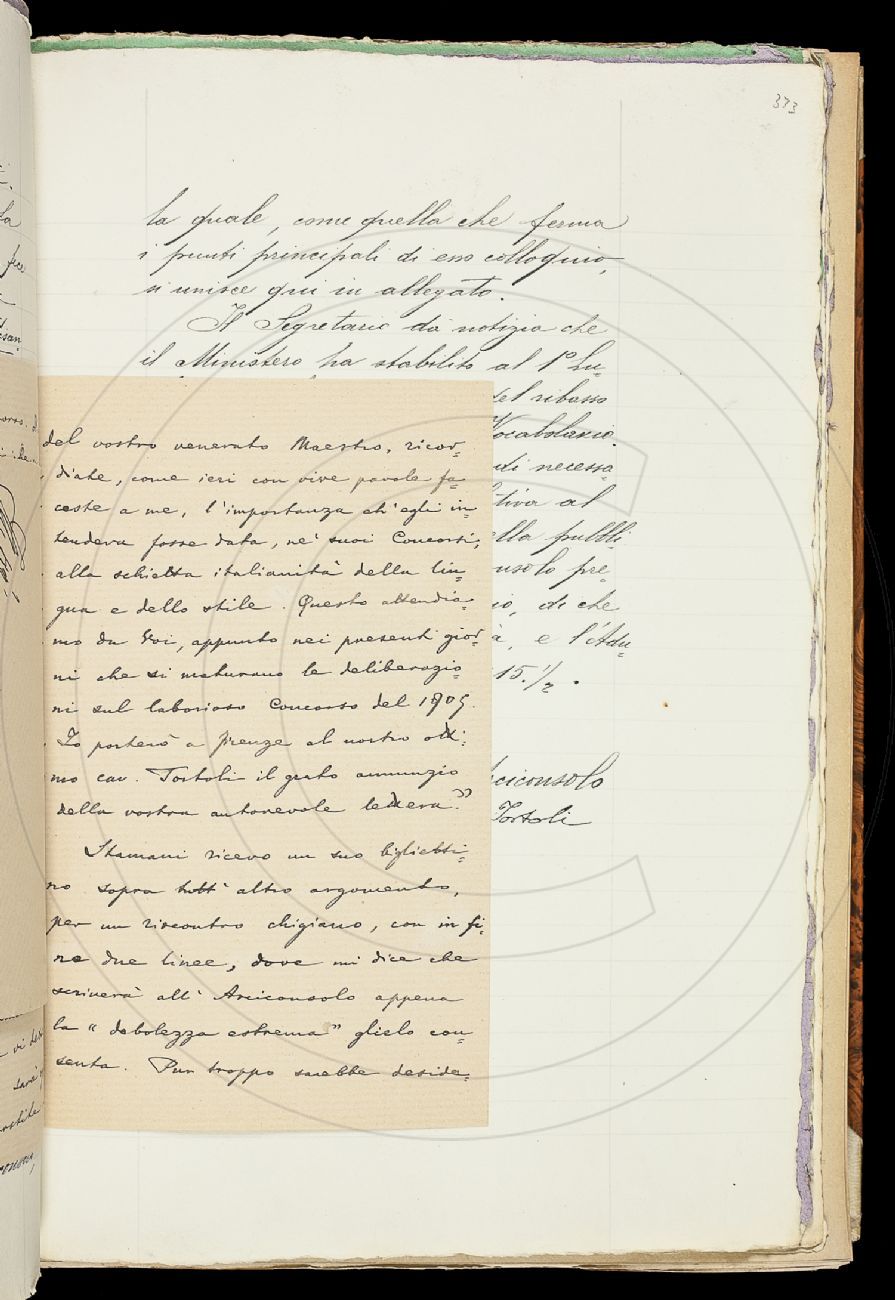 373
la quale, come quella che ferma
i punti principali di esso colloquio,
si unisce qui in allegato.
Il Segretario dà notizia che
il Ministero ha stabilito al 1º Lu=
del ribasso
Vocabolario
di necessa=
tiva al
ella pubbli=
nsolo pre=
io, di che
à, e l'Adu=
15.1/2.
ciconsolo
Tortoli
del vostro venerato Maestro, ricor=
diate, come ieri con vive parole fa=
ceste a me, l'importanza ch'egli in=
tendeva fosse data, ne' suoi Concorsi,
alla schietta italianità della lin=
gua e dello stile. Questo attendia=
mo da Voi, appunto nei presenti gior=
ni che si maturano le deliberazio=
ni sul laborioso Concorso del 1905.
Io porterò a Firenze al nostro otti=
mo cav. Tortoli il grato annunzio
della vostra autorevole lettera."
Stamani ricevo un suo bigliettι=
no sopra tutt'altro argomento,
per un riscontro chigiano, con in fi=
ne due linee, dove mi dice che
scriverà all'Arciconsolo appena
la "debolezza estrema" glielo con=
senta. Pur troppo sarebbe deside=